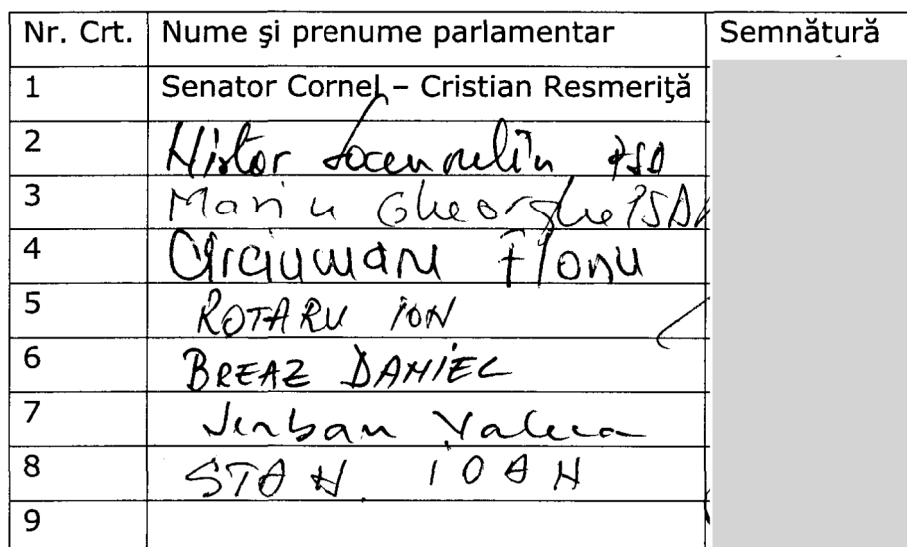 Nr. Crt. Nume şi prenume parlamentar Semnătură
1 Senator Cornel – Cristian Resmeriţă
2 Nistor PSD
3 Marin Gheorghe PSD
4 Florin
5 ROTARU ION
6 BREAZ DANIEL
7 Şerban Valeca
8 STAN IOAN
9